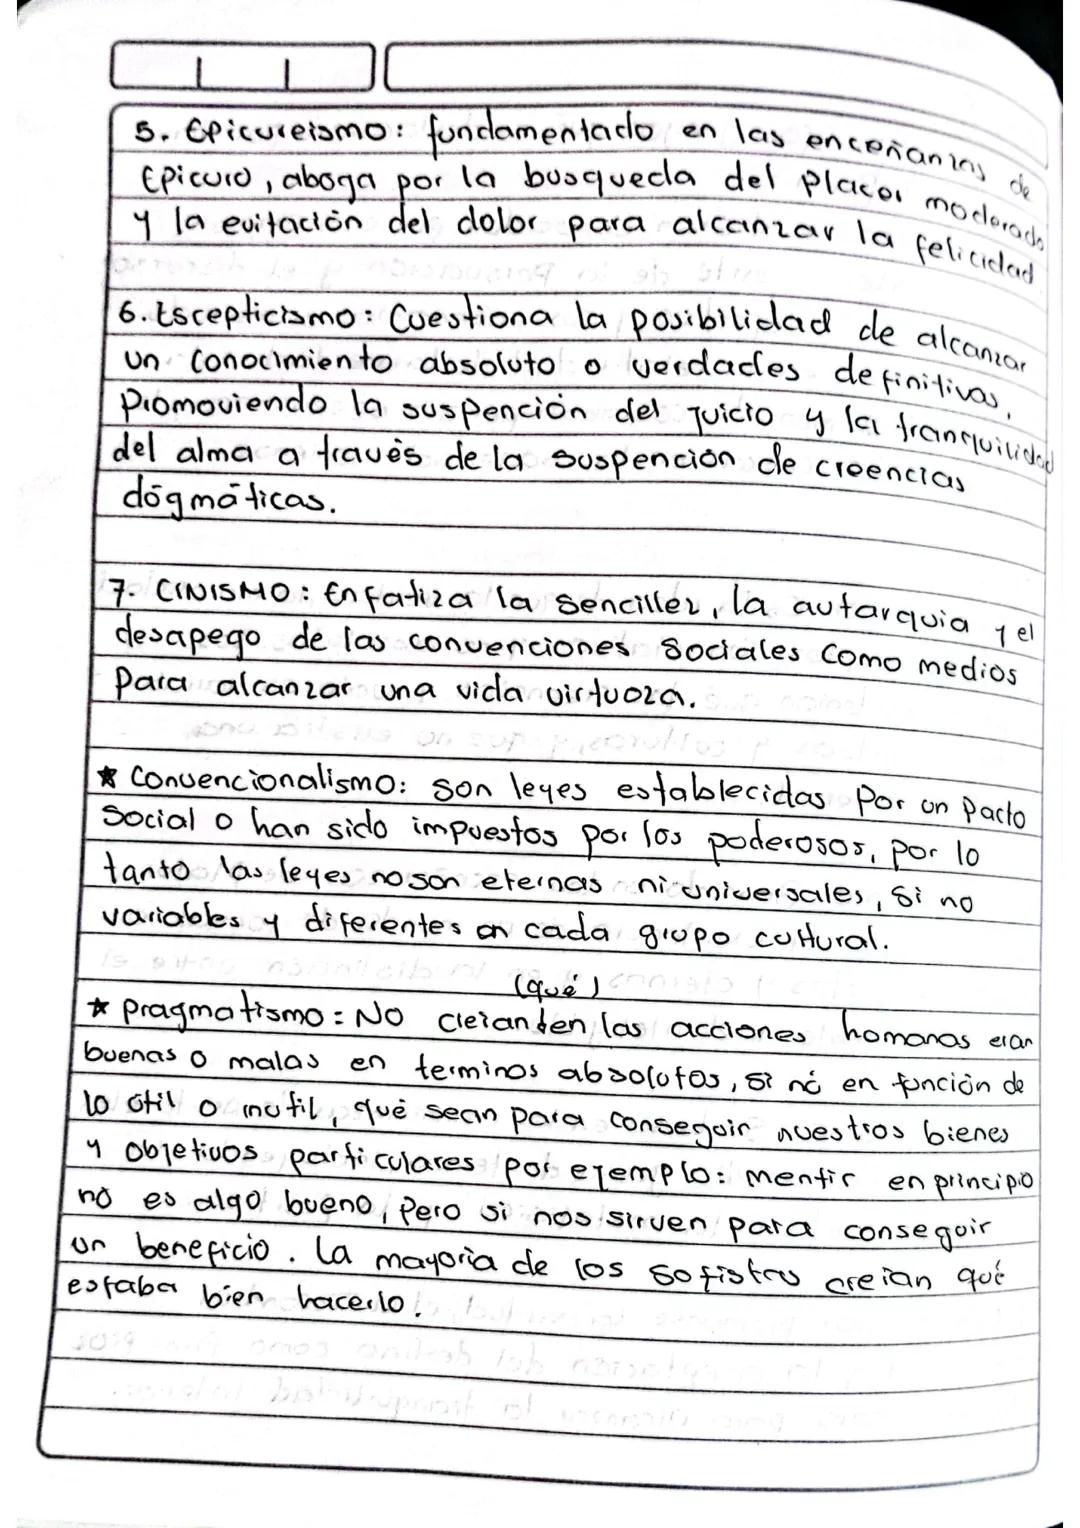 5. Epicureismo: fundamentado en las enceñanzas de
Epicuro, aboga por la busqueda del placer moderado
y la evitación del dolor para alcanzar la felicidad
6. Escepticismo: Cuestiona la posibilidad de alcanzar
un conocimiento absoluto o verdades definitivas,
Promoviendo la suspención del juicio y la tranquilidad
del alma a través de la suspención de creencias
dógmáticas.
7. CINISMO: Enfatiza la sencillez, la autarquia y el
desapego de las convenciones Sociales Como medios
Para alcanzar una vida virtuoza.
★ Convencionalismo: son leyes establecidas Por un Pacto
Social o han sido impuestos por los poderosos, por lo
tanto las leyes no son eternas ni universales, si no
variables y diferentes en cada grupo cultural.
(qué)
★ pragmatismo: No creian den las acciones humanas eran
buenas o malas en terminos absolutos, si nó en función de
lo útil o inutil, qué sean para conseguir nuestros bienes
y objetivos particulares por ejemplo: mentir en principio
no es algo bueno, Pero si nos sirven para conseguir
un beneficio. la mayoria de los sofistas creian qué
estaba bien hacerlo.